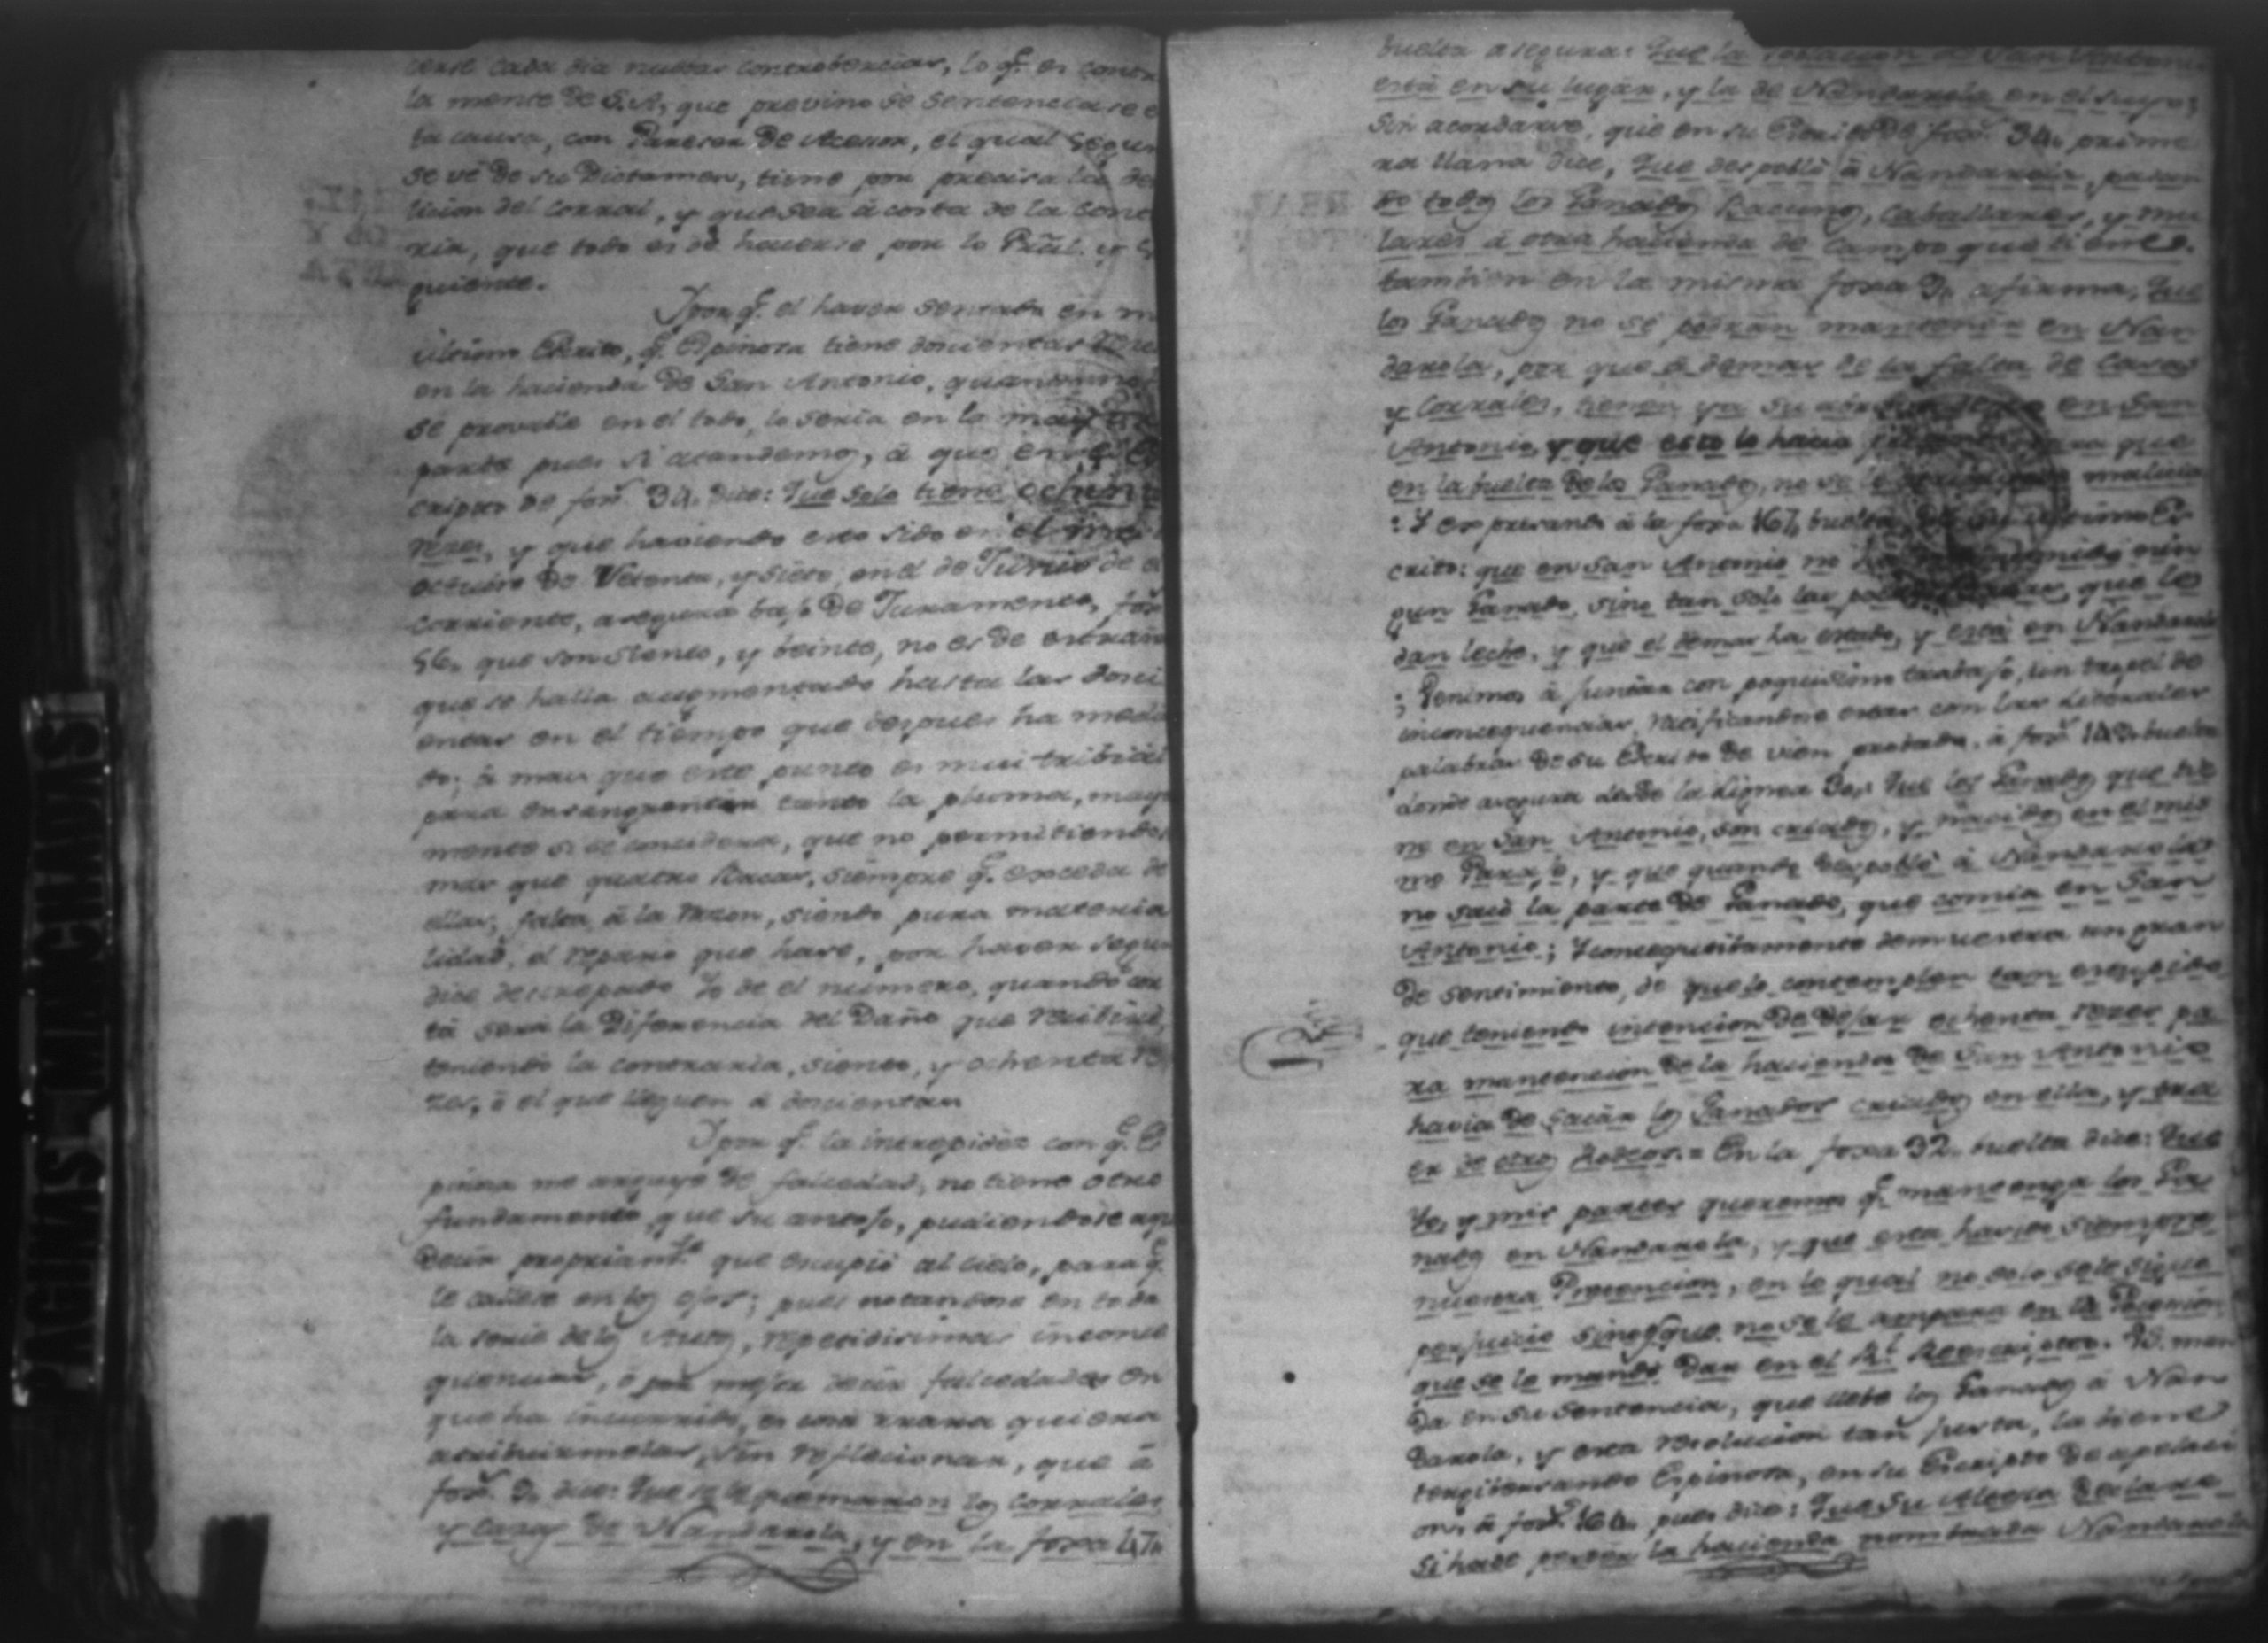 cerse cada dia nuebas controbercias, lo q.e es contra
la mente de S.A, que previno se sentenciase e
ta causa, con Pareser de Acesor, el qual segun
se vé de su Dictamen, tiene por precisa la de
licion del corral, y que sea á costa de la cont
ria, que todo es de hacerse por lo Pral. y
quiente.
Y por q.e el haver sentado en m
ultimo Escrito, q.e Espinosa tiene docientas Rece
en la hacienda de San Antonio, quando no
se provase en el todo, lo seria en la mayor
parte pues si atendemos, á que en el Es
cripto de fox.s 34. dice: Que solo tiene ochenta
rezes, y que haviendo esto sido en el mes
octubre de Setenta, y siete; en el de Junio de el
corriente, asegura bajo de Juramento, fox
56. que son siento, y beinte, no es de estrañar
que se halla augmentado hasta las doci
entas en el tiempo que despues ha media
do; á mas que este punto es mui tribial
para ensangrentar tanto la pluma, mayor
mente si se concidera, que no permitiendo
mas que quatro Bacas, siempre q.e exceda de
ellas, falta á la razon, siendo pura materia
lidad, el reparo que hase, por haver segun
dice decrepado Yo de el numero, quando cor
ta sera la Diferencia del Daño que recibiré,
teniendo la contraria, siento, y ochenta re
zes, ó el que lleguen á docientas
Y por q.e la intrepidez con q.e Es
pinosa me arguye de falcedad, no tiene otro
fundamento, que su antojo, pudiendose aqui
decir propriam.te que escupió al cielo, para q.e
le callese en los ojos; pues notandose en toda
la serie de los Autos, repetidisimas inconse
quencias, ó por mejor decir falcedades en
que ha incurrido, es cosa rrara quiera
atribuirmelas, sin reflecionar, que á
fox.s 3. dice: Que se le quemaron los corrales
y casas de Nandarola, y en la foxa 47.
buelta asegura: Que la poblacion de San Antonio
está en su lugar, y la de Nandarola en el suyo;
Sin acordarse, que en su Escrito de fox.s 34. prime
ra llana dice, Que despobló á Nandarola, pasan
do todos los Ganados Bacunos, caballares, y mu
lares á otra hacienda de campo que tiene.
tambien en la misma foxa 3. afirma, Que
los Ganados no se podran mantener en Nan
darola, por que á demas de la falta de casas
y Corrales, tienen ya su en San
Antonio, y que esto lo hacia para que
en la buelta de los Ganados, no se le
: Y expresando á la foxa 167. buelta, ultimo Es
crito: que en San Antonio no nin
gun Ganado, sino tan solo las que les
dan leche, y que el demas ha estado, y está en Nandarola
; Benimos á juntar con poquisimo trabajo, un tropel de
inconcequencias, ratificandose estas con las literales
palabras de su Escrito de vien probado, á fox.s 143. buelta
donde asegura desde la Lignea 30. Que los Ganados que tie
ne en San Antonio, son criados, y nacidos en el mis
mo Paraje, y que quando despobló á Nandarola
no sacó la parte de Ganado, que comia en San
Antonio; Y concequtibamente demuestra un gran
de sentimiento, de que lo contemplen tan estupido
que teniendo intencion de dejar ochenta rezes pa
ra mantencion de la hacienda de San Antonio
havia de sacar los Ganados criados en ella, y tra
er de otros Rodeos. = En la foxa 32. buelta dice: Que
Yo, y mis partes queremos q.e mantenga los Ga
nados en Nandarola, y que esta ha sido siempre
nuestra Pretencion, en lo qual no solo se le sigue
perjuicio sino q.e que no se le ampara en la Posecion
que se le mandó dar en el R.l Reescripto. V. man
da en su sentencia, que llebe los Ganados á Nan
darola, y esta resolucion tan justa, la biene
tergibersando Espinosa, en su Escripto de apelaci
on á fox.s 164. pues dice: Que Su Merced declare
si hade perder la hacienda nombrada Nandarola